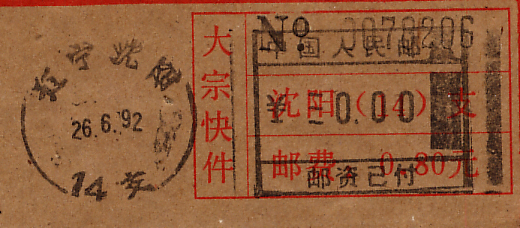 辽宁沈阳
26.6.92
14支
大宗快件
No 0070206
中国人民邮
沈阳(14)支
0.00
邮费 0.80元
邮资已付